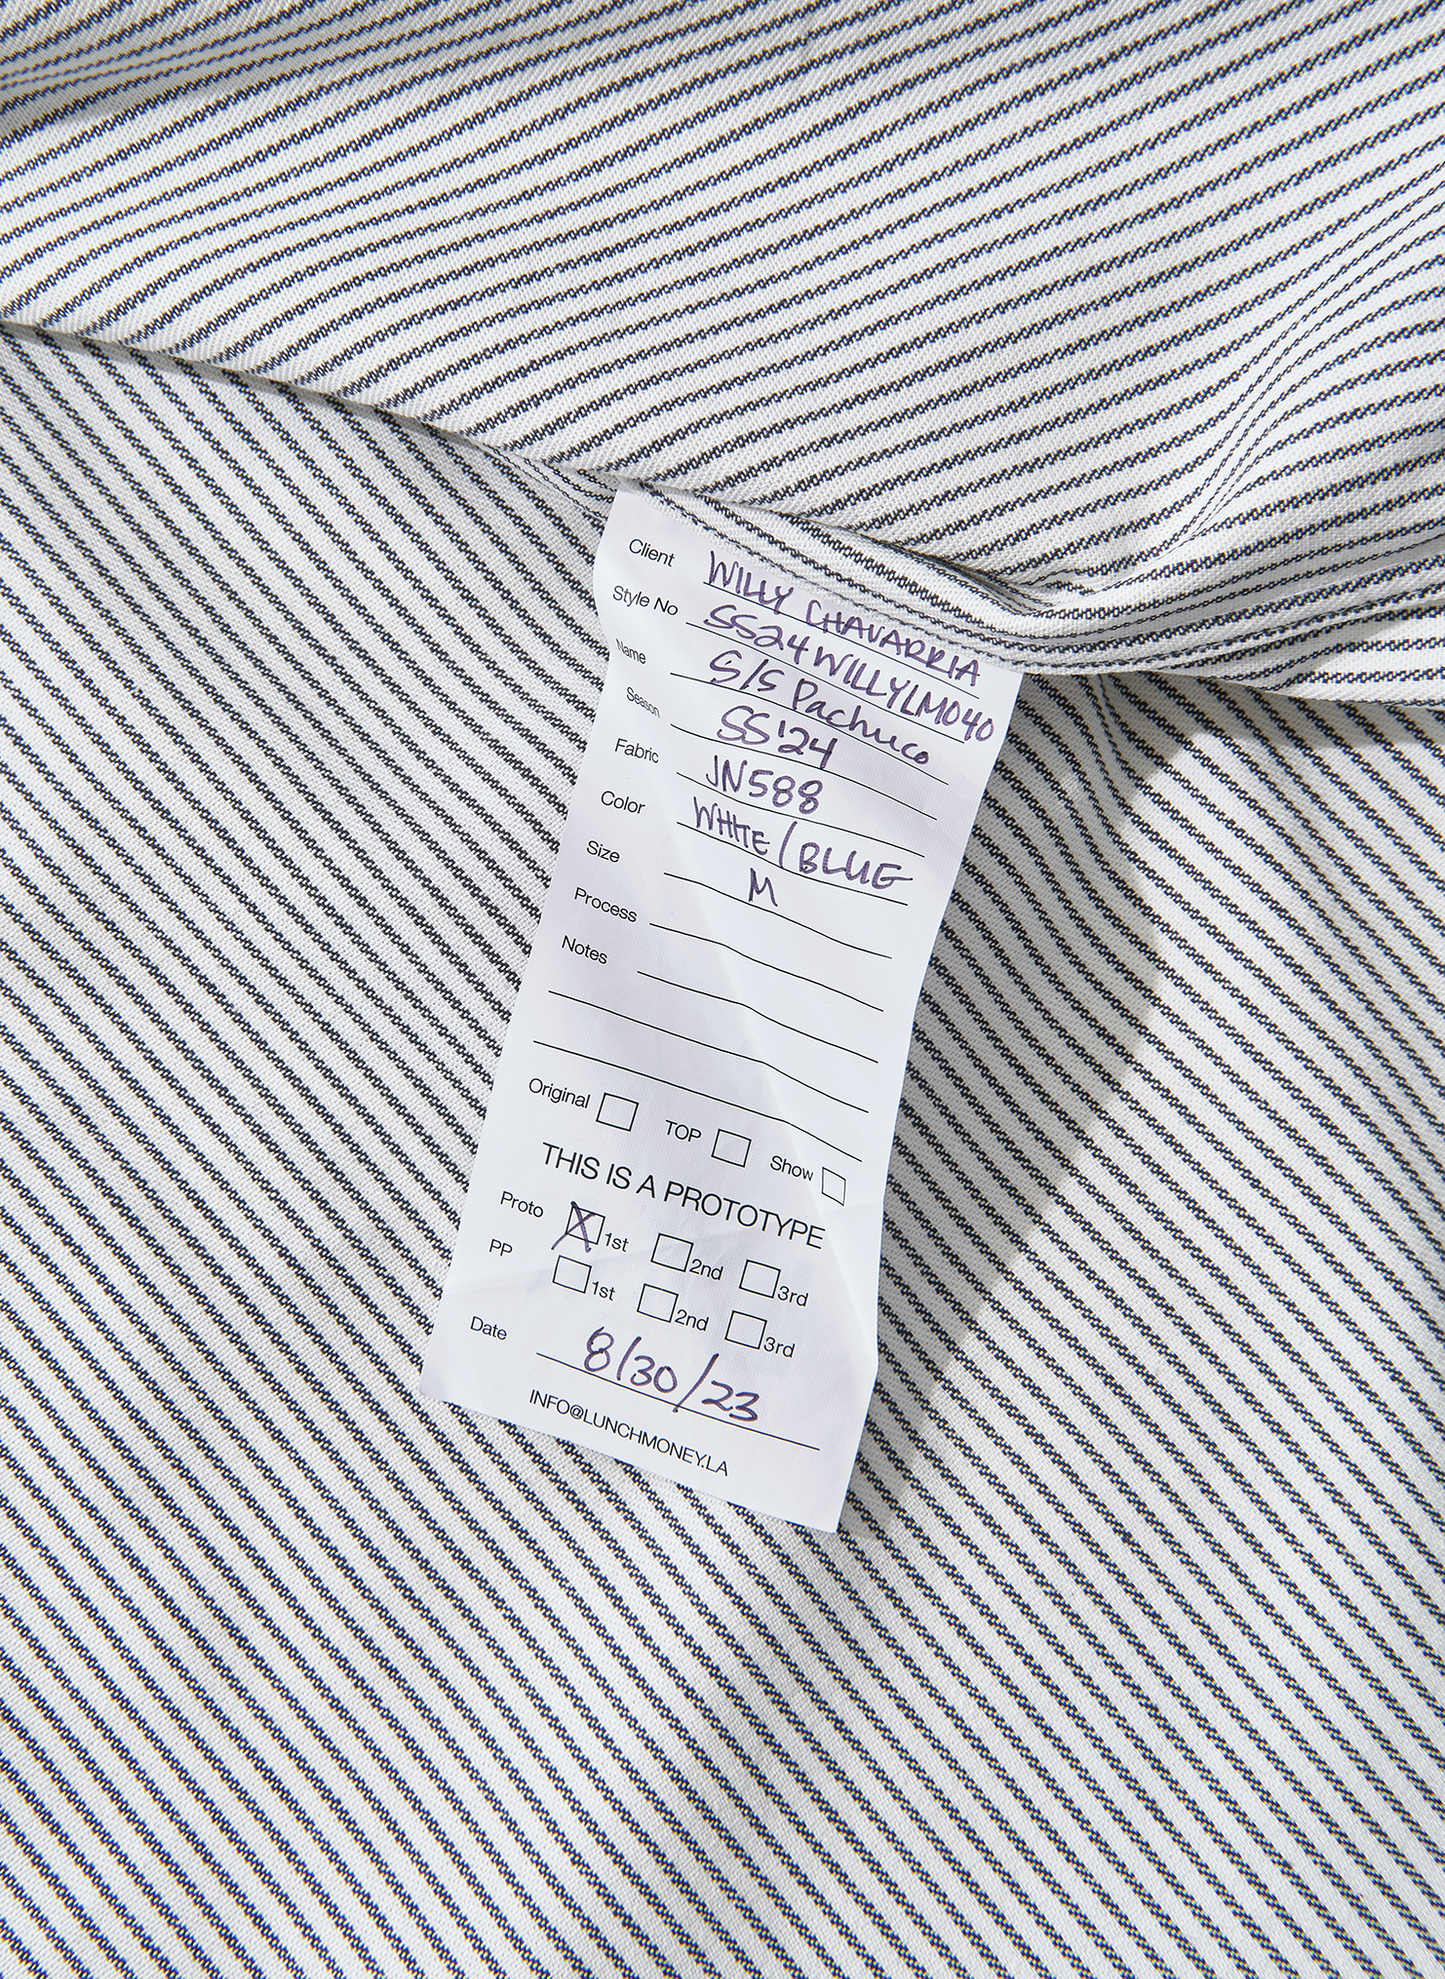 Client WILLY CHAVARRIA
Style No SS24WILLYLM040
Name S/S Pachuco
Season SS'24
Fabric JN588
Color WHITE/BLUE
Size M
Process
Notes
Original TOP Show
THIS IS A PROTOTYPE
Proto X 1st 2nd 3rd
PP 1st 2nd 3rd
Date 8/30/23
INFO@LUNCHMONEY.LA